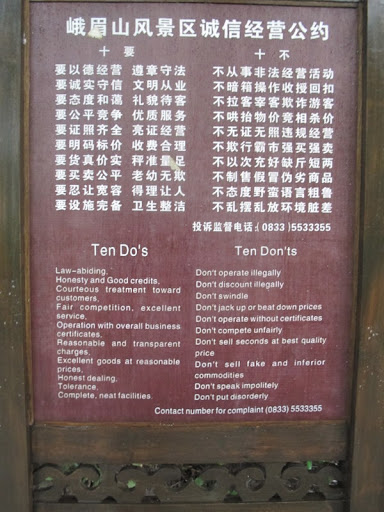 峨眉山风景区诚信经营公约
十要
要以德经营 遵章守法
要诚实守信 文明从业
要态度和蔼 礼貌待客
要公平竞争 优质服务
要证照齐全 亮证经营
要明码标价 收费合理
要货真价实 秤准量足
要买卖公平 老幼无欺
要忍让宽容 得理让人
要设施完备 卫生整洁
十不
不从事非法经营活动
不暗箱操作收授回扣
不拉客宰客欺诈游客
不哄抬物价竞相杀价
不无证无照违规经营
不欺行霸市强买强卖
不以次充好缺斤短两
不制售假冒伪劣商品
不态度野蛮语言粗鲁
不乱摆乱放环境脏差
投诉监督电话:(0833)5533355
Ten Do's
Law-abiding,
Honesty and Good credits,
Courteous treatment toward
customers,
Fair competition, excellent
service,
Operation with overall business
certificates,
Reasonable and transparent
charges,
Excellent goods at reasonable
prices,
Honest dealing,
Tolerance,
Complete, neat facilities.
Ten Don'ts
Don't operate illegally
Don't discount illegally
Don't swindle
Don't jack up or beat down prices
Don't operate without certificates
Don't compete unfairly
Don't sell seconds at best quality
price
Don't sell fake and inferior
commodities
Don't speak impolitely
Don't put disorderly
Contact number for complaint (0833) 5533355